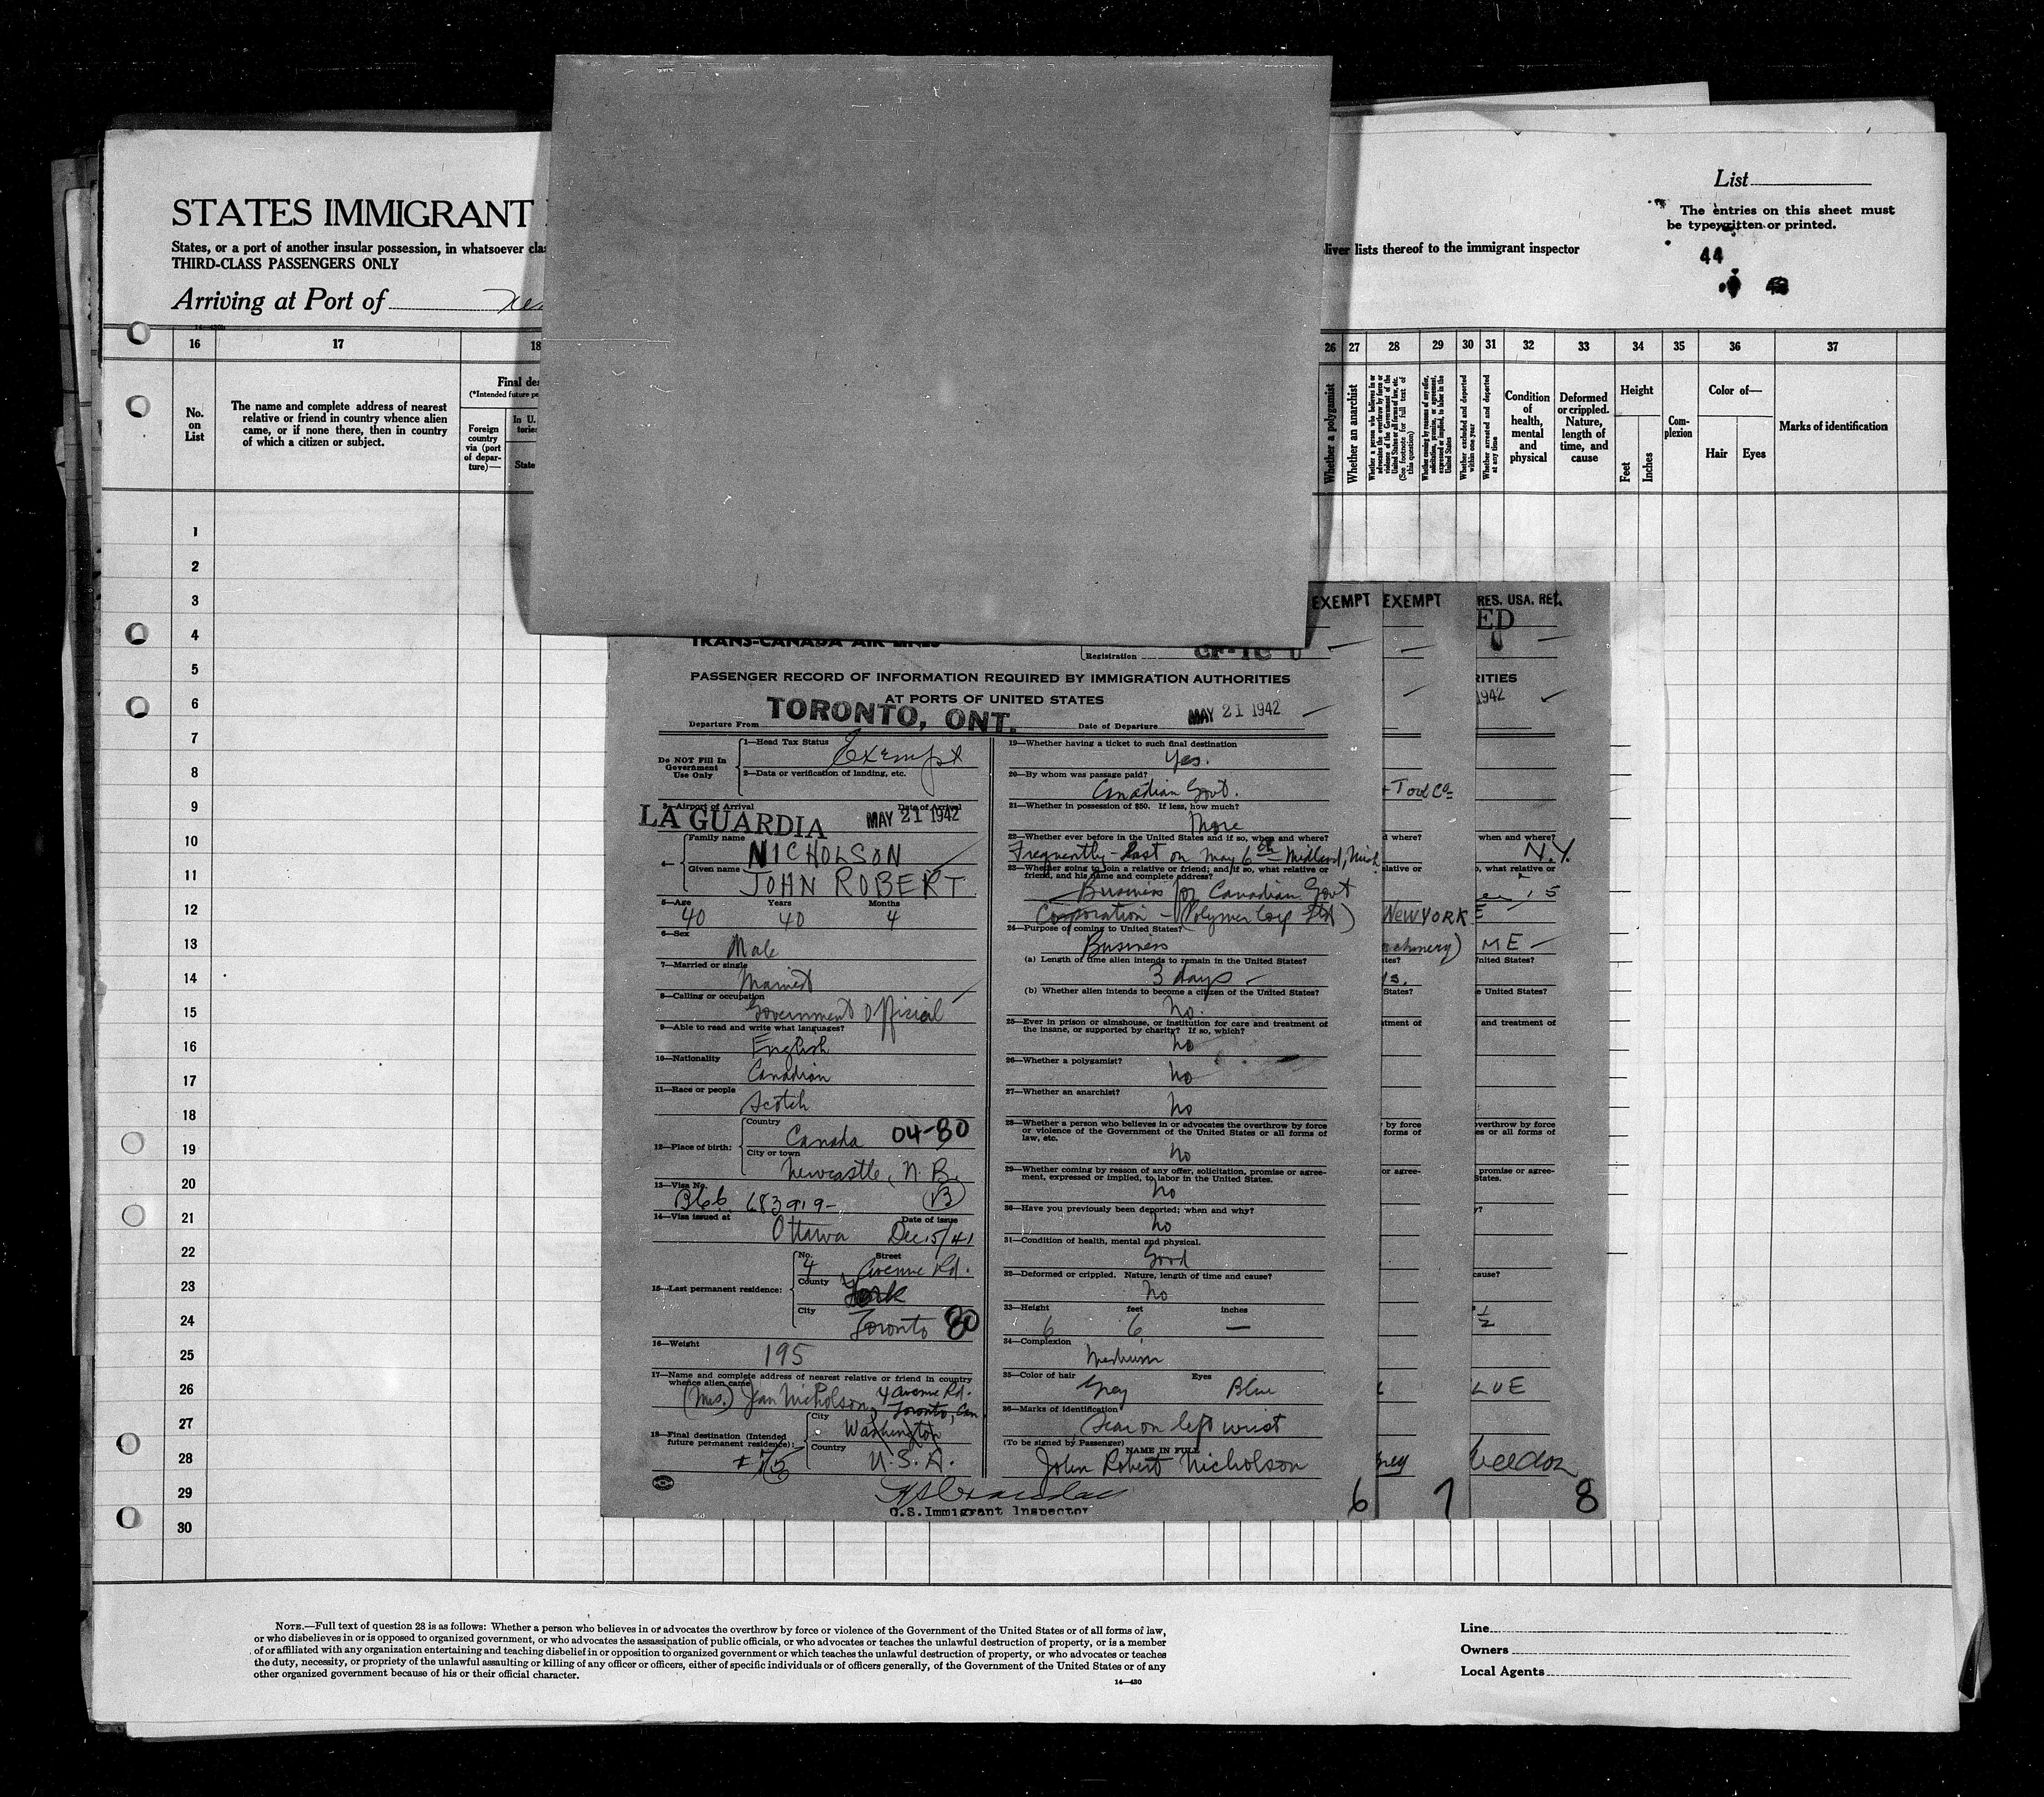 STATES IMMIGRANT
States, or a port of another insular possession, in whatsoever
liver lists thereof to the immigrant inspector
THIRD-CLASS PASSENGERS ONLY
Arriving at Port of
List
The entries on this sheet must
be typewritten or printed.
44
16 17 18 26 27 28 29 30 31 32 33 34 35 36 37
No.
on
List
The name and complete address of nearest
relative or friend in country whence alien
came, or if none there, then in country
of which a citizen or subject.
Final
(*Intended future
Foreign
country
via (port
of depar-
ture)—
In U.
State
Whether a polygamist
Whether an anarchist
Whether a person who believes in or
advocates the overthrow by force or
violence of the Government of the
United States or all forms of law, etc.
(See footnote for full text of
this question)
Whether coming by reasons of any offer,
solicitation, promise, or agreement,
expressed or implied, to labor in the
United States
Whether excluded and deported
within one year
Whether arrested and deported
at any time
Condition
of
health,
mental
and
physical
Deformed
or crippled.
Nature,
length of
time, and
cause
Height
Feet
Inches
Com-
plexion
Color of—
Hair Eyes
Marks of identification
1
2
3
4
5
6
7
8
9
10
11
12
13
14
15
16
17
18
19
20
21
22
23
24
25
26
27
28
29
30
TRANS-CANADA AIR LINES
Registration CF-TC
PASSENGER RECORD OF INFORMATION REQUIRED BY IMMIGRATION AUTHORITIES
AT PORTS OF UNITED STATES
Departure From TORONTO, ONT. Date of Departure MAY 21 1942
Do NOT Fill In
Government
Use Only
1—Head Tax Status Exempt
2—Data or verification of landing, etc.
3—Airport of Arrival Date of Arrival
LA GUARDIA MAY 21 1942
4—
Family name NICHOLSON
Given name JOHN ROBERT
5—Age Years Months
40 40 4
6—Sex Male
7—Married or single Married
8—Calling or occupation Government Official
9—Able to read and write what languages? English
10—Nationality Canadian
11—Race or people Scotch
12—Place of birth:
Country Canada 04-80
City or town Newcastle, N.B.
13—Visa No. 683919- B
14—Visa issued at Ottawa Date of issue Dec 15/41
15—Last permanent residence:
No. 4 Street Avenue Rd.
County York
City Toronto 80
16—Weight 195
17—Name and complete address of nearest relative or friend in country
whence alien came
(Mrs.) Jean Nicholson, 4 Avenue Rd.
Toronto, Can.
18—Final destination (Intended
future permanent residence):
City Washington
Country U.S.A.
U.S. Immigrant Inspector
19—Whether having a ticket to such final destination
Yes.
20—By whom was passage paid?
Canadian Govt.
21—Whether in possession of $50. If less, how much?
More
22—Whether ever before in the United States and if so, when and where?
Frequently - Last on May 6th Midland, Mich
23—Whether going to join a relative or friend; and if so, what relative or
friend, and his name and complete address?
Business for Canadian Govt
Corporation - (Polymer Corp Ltd)
24—Purpose of coming to United States?
Business
(a) Length of time alien intends to remain in the United States?
3 days
(b) Whether alien intends to become a citizen of the United States?
No.
25—Ever in prison or almshouse, or institution for care and treatment of
the insane, or supported by charity? If so, which?
No
26—Whether a polygamist?
No
27—Whether an anarchist?
No
28—Whether a person who believes in or advocates the overthrow by force
or violence of the Government of the United States or all forms of
law, etc.
No
29—Whether coming by reason of any offer, solicitation, promise or agree-
ment, expressed or implied, to labor in the United States.
No
30—Have you previously been deported; when and why?
No
31—Condition of health, mental and physical.
Good
32—Deformed or crippled. Nature, length of time and cause?
No
33—Height feet inches
6 6 —
34—Complexion
Medium
35—Color of hair Eyes
Grey Blue
36—Marks of identification
Scar on left wrist
(To be signed by Passenger) NAME IN FULL
John Robert Nicholson
6
EXEMPT
EXEMPT
+ Tool Co
d where?
elative or
NEW YORK
machinery)
ates?
States?
tment of
by force
forms of
or agree-
7
RES. USA. RET.
ED
RITIES
1942
when and where?
N.Y.
o, what relative or
ME
United States?
e United States?
and treatment of
overthrow by force
es or all forms of
promise or agree-
States.
y?
cause?
1/2
LUE
8
NOTE.—Full text of question 28 is as follows: Whether a person who believes in or advocates the overthrow by force or violence of the Government of the United States or of all forms of law,
or who disbelieves in or is opposed to organized government, or who advocates the assassination of public officials, or who advocates or teaches the unlawful destruction of property, or is a member
of or affiliated with any organization entertaining and teaching disbelief in or opposition to organized government or which teaches the unlawful destruction of property, or who advocates or teaches
the duty, necessity, or propriety of the unlawful assaulting or killing of any officer or officers, either of specific individuals or of officers generally, of the Government of the United States or of any
other organized government because of his or their official character.
14—430
Line
Owners
Local Agents